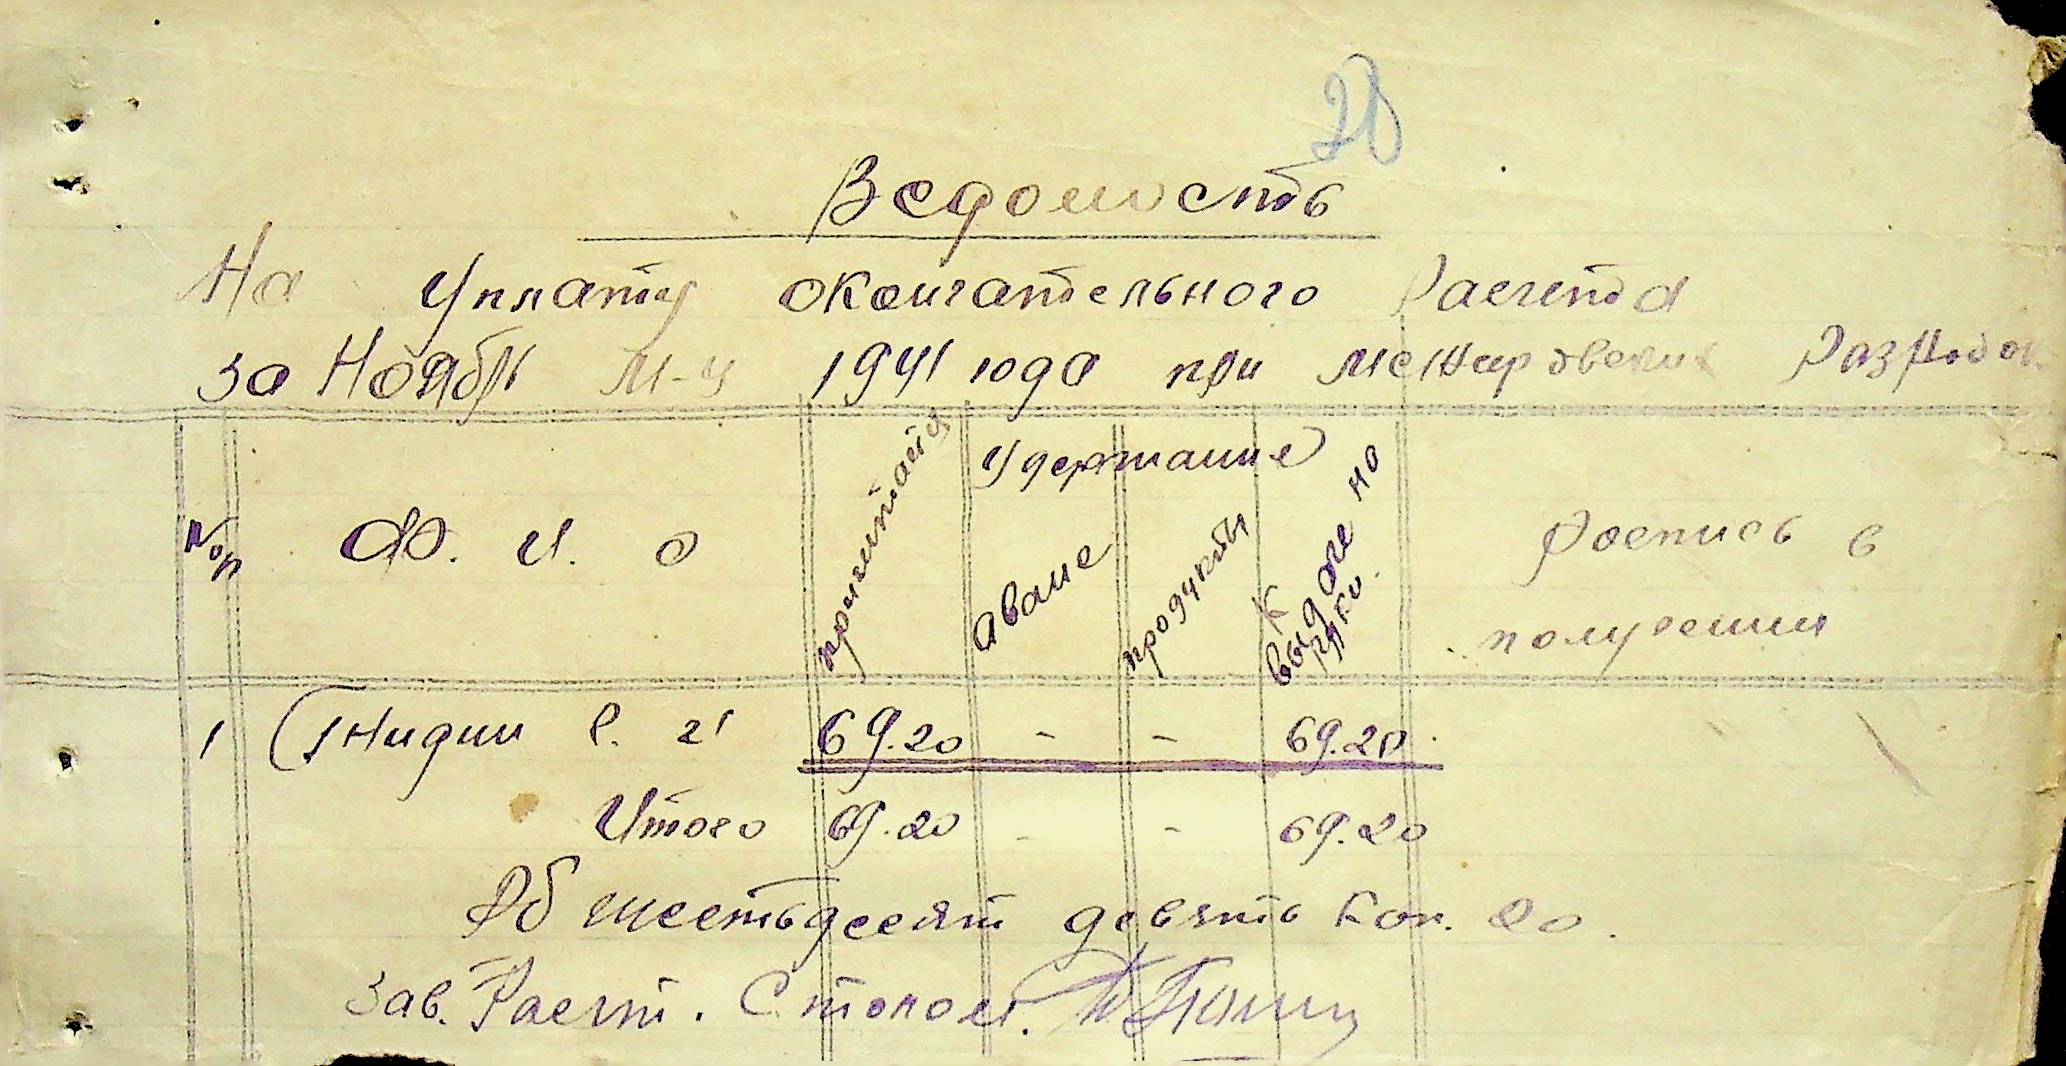 28
Ведомость
На Уплату окончательного Расчета
за Ноябрь М-ц 1941 года при
№ п/п Ф. И. О причитается Удержание аванс продукты к выдаче на руки. Роспись в получении
1 69.20 - - 69.20
Итого 69.20 - - 69.20
Об шестьдесят девять коп. 20.
Зав. Расчт. Столом.